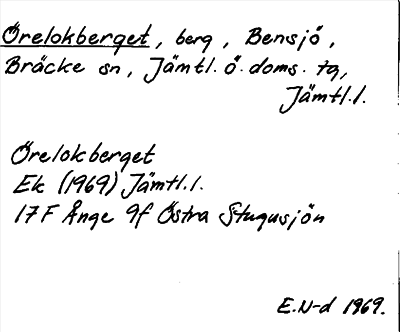 Örelokberget, berg, Bensjö,
Bräcke sn, Jämtl. ö. doms. tg,
Jämtl.l.
Örelokberget
Ek (1969) Jämtl.l.
17F Ånge 9f Östra Stugusjön
E.N-d 1969.